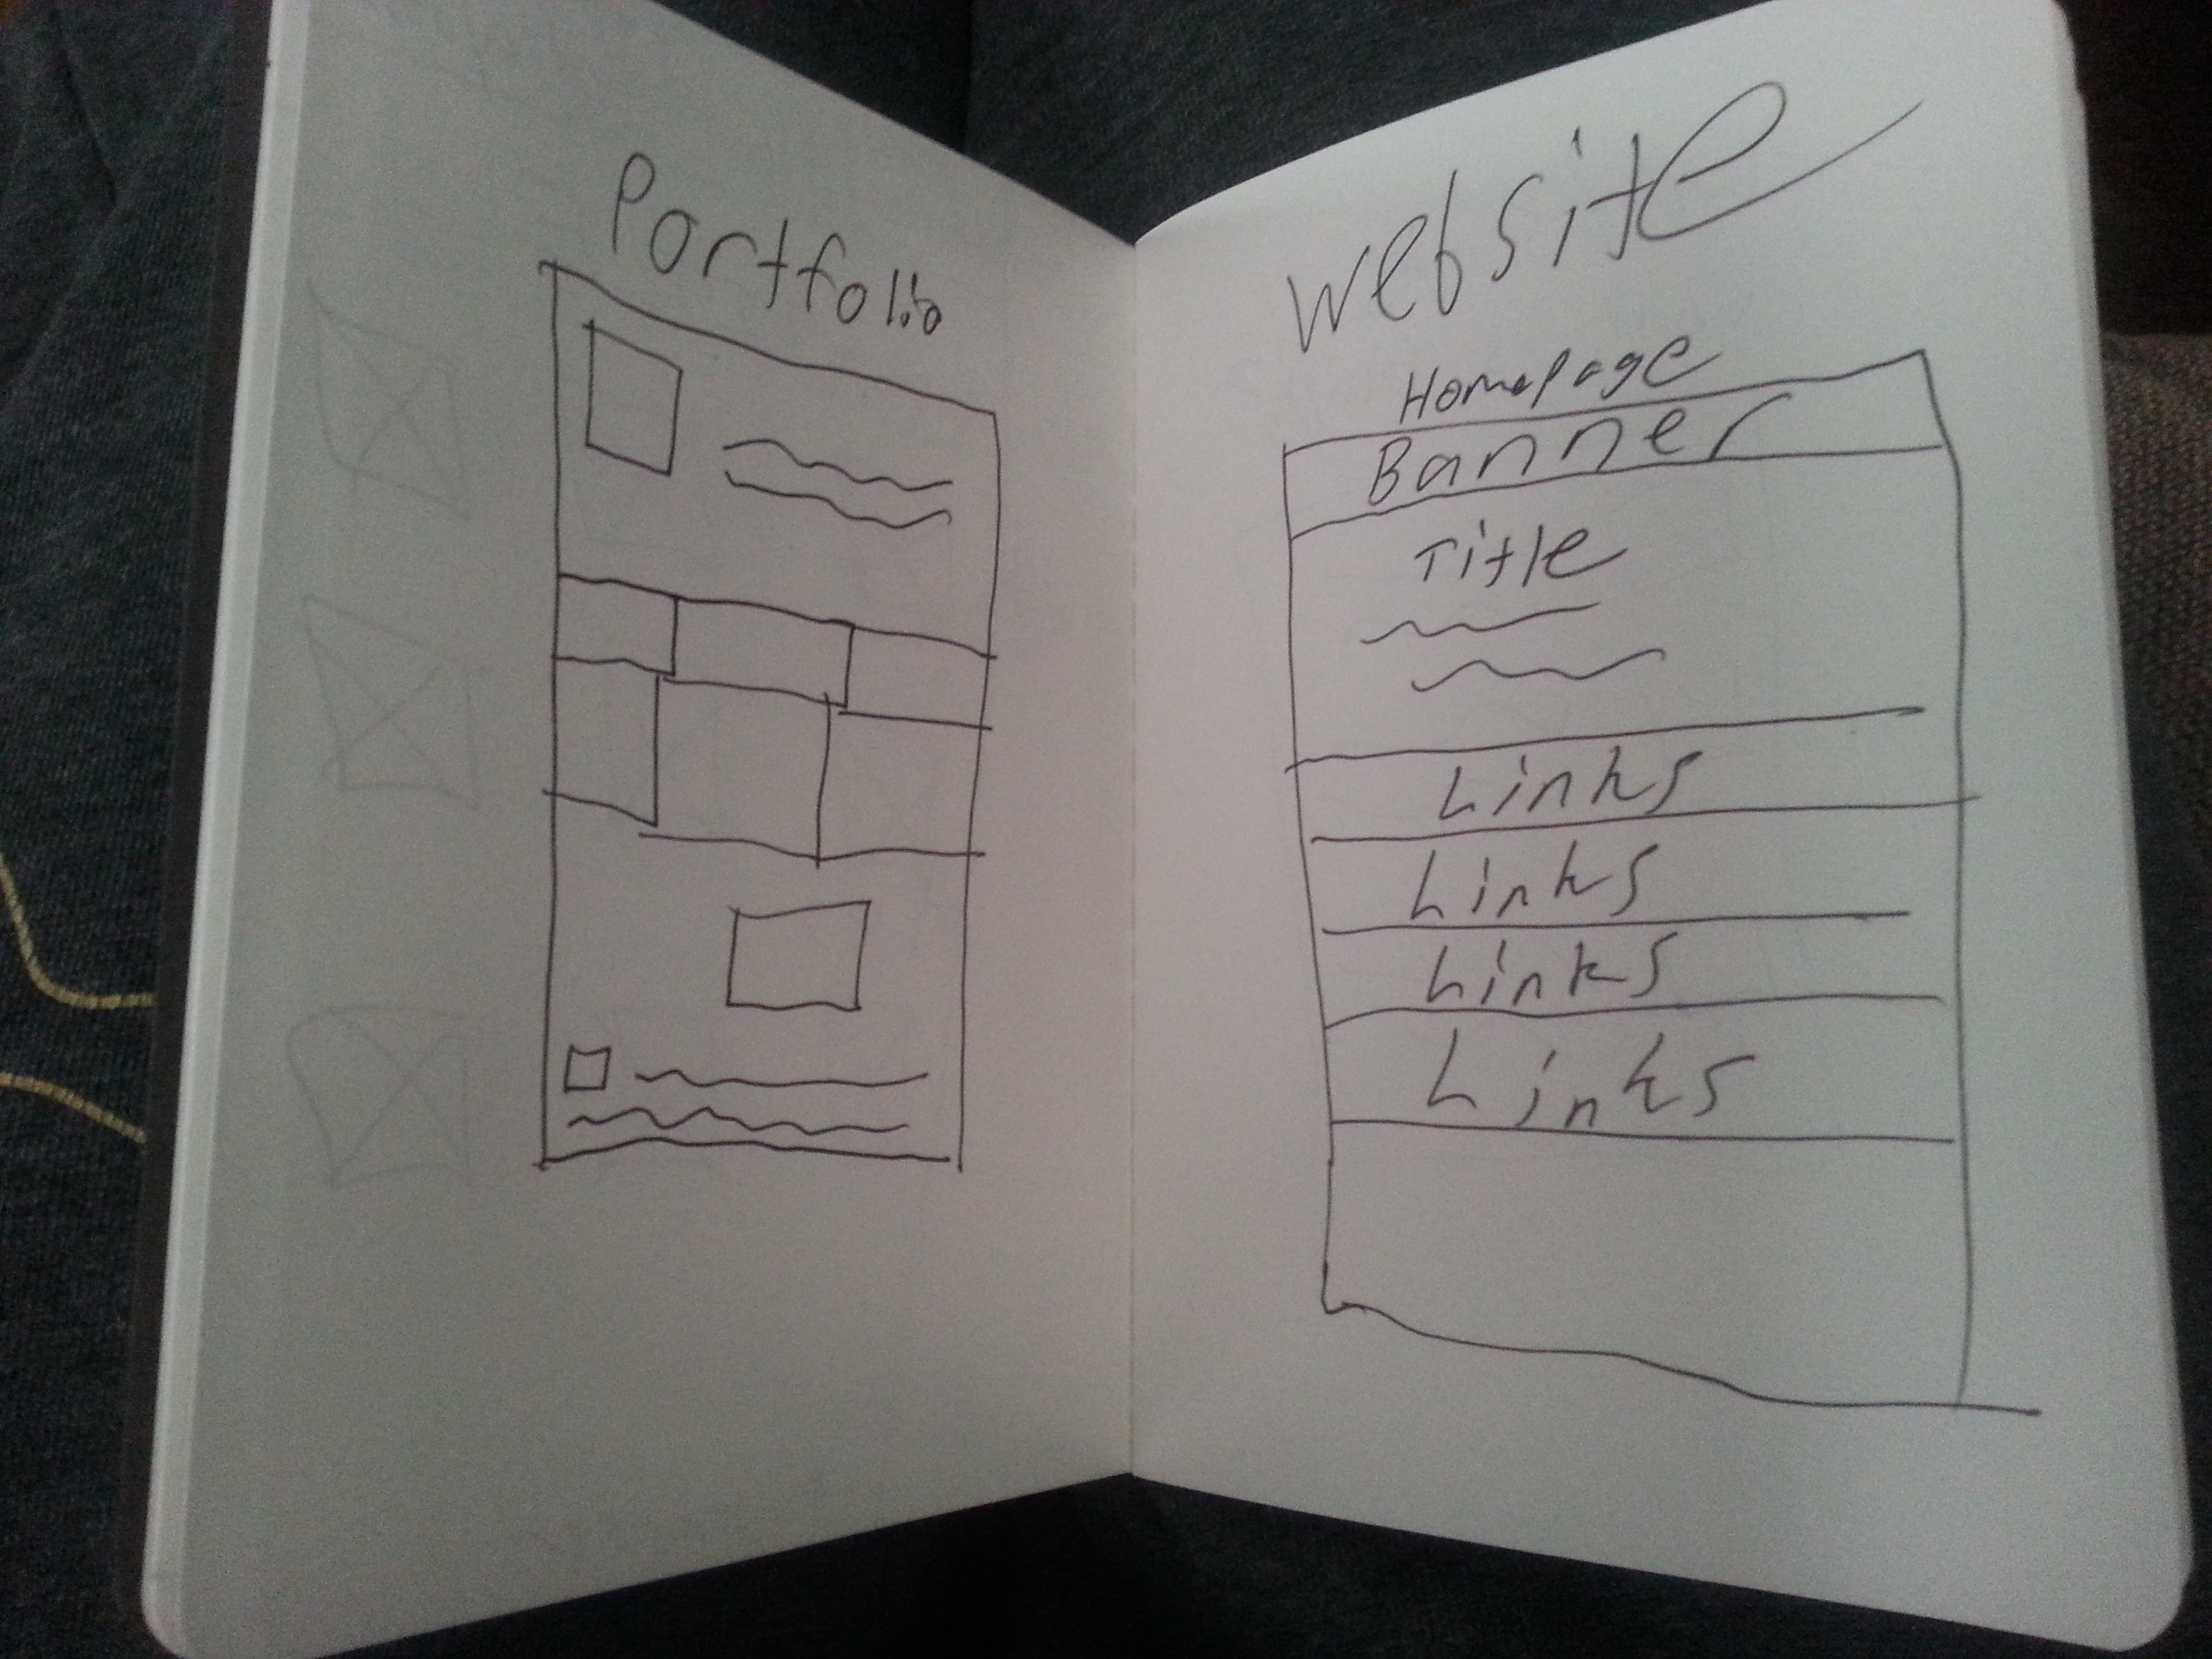 Portfolio
Website
Homepage
Banner
Title
Links
Links
Links
Links